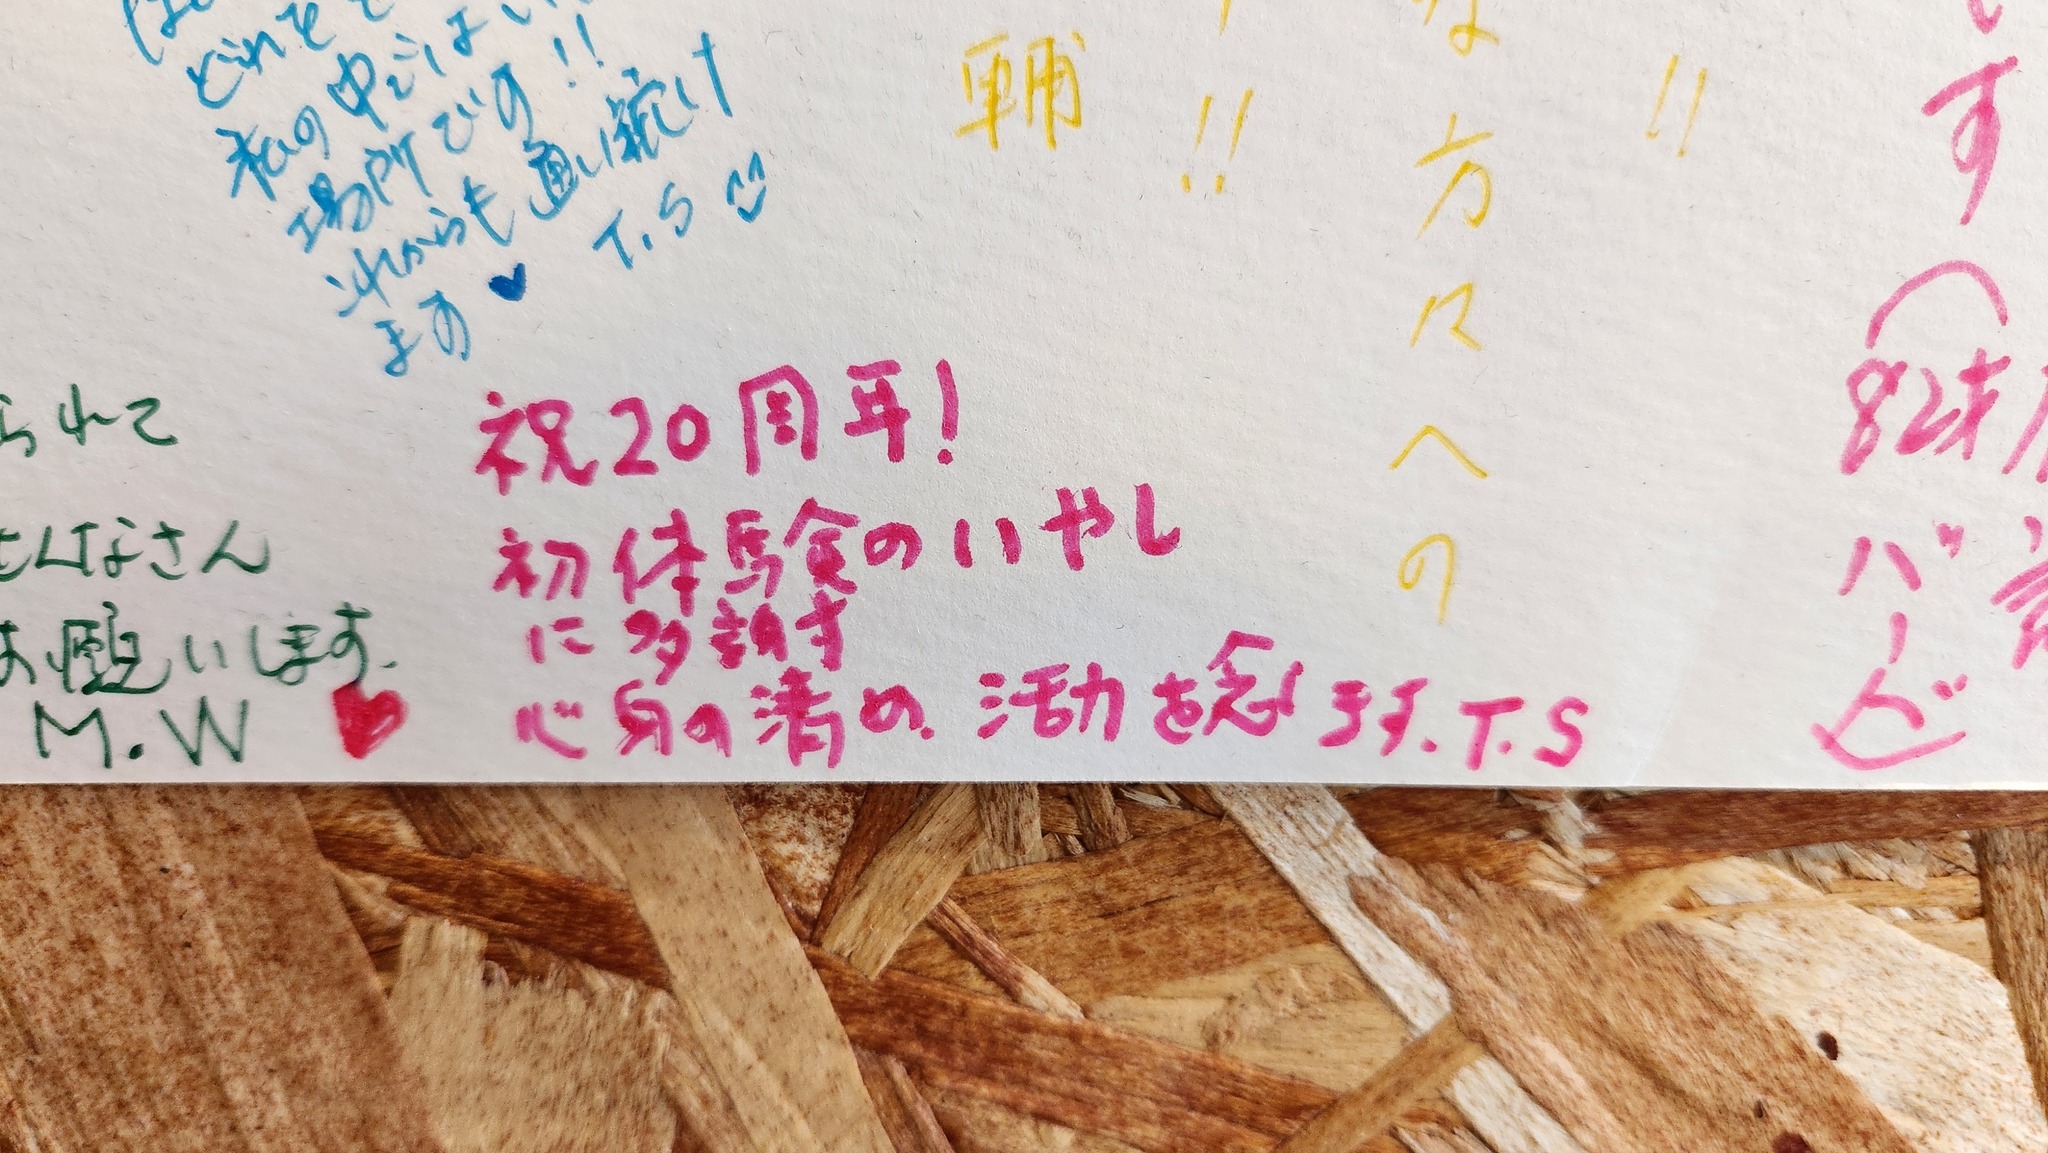 どれも
私の中ではよい
場所です!!
これからも通い続け
ます♥ T.S
輔
!!
な方々への
!!
す(82才
バード
られて
みなさん
お願いします。
M.W
祝20周年!
初体験のいやし
に多謝す
心身の清め、活力を念じます。T.S